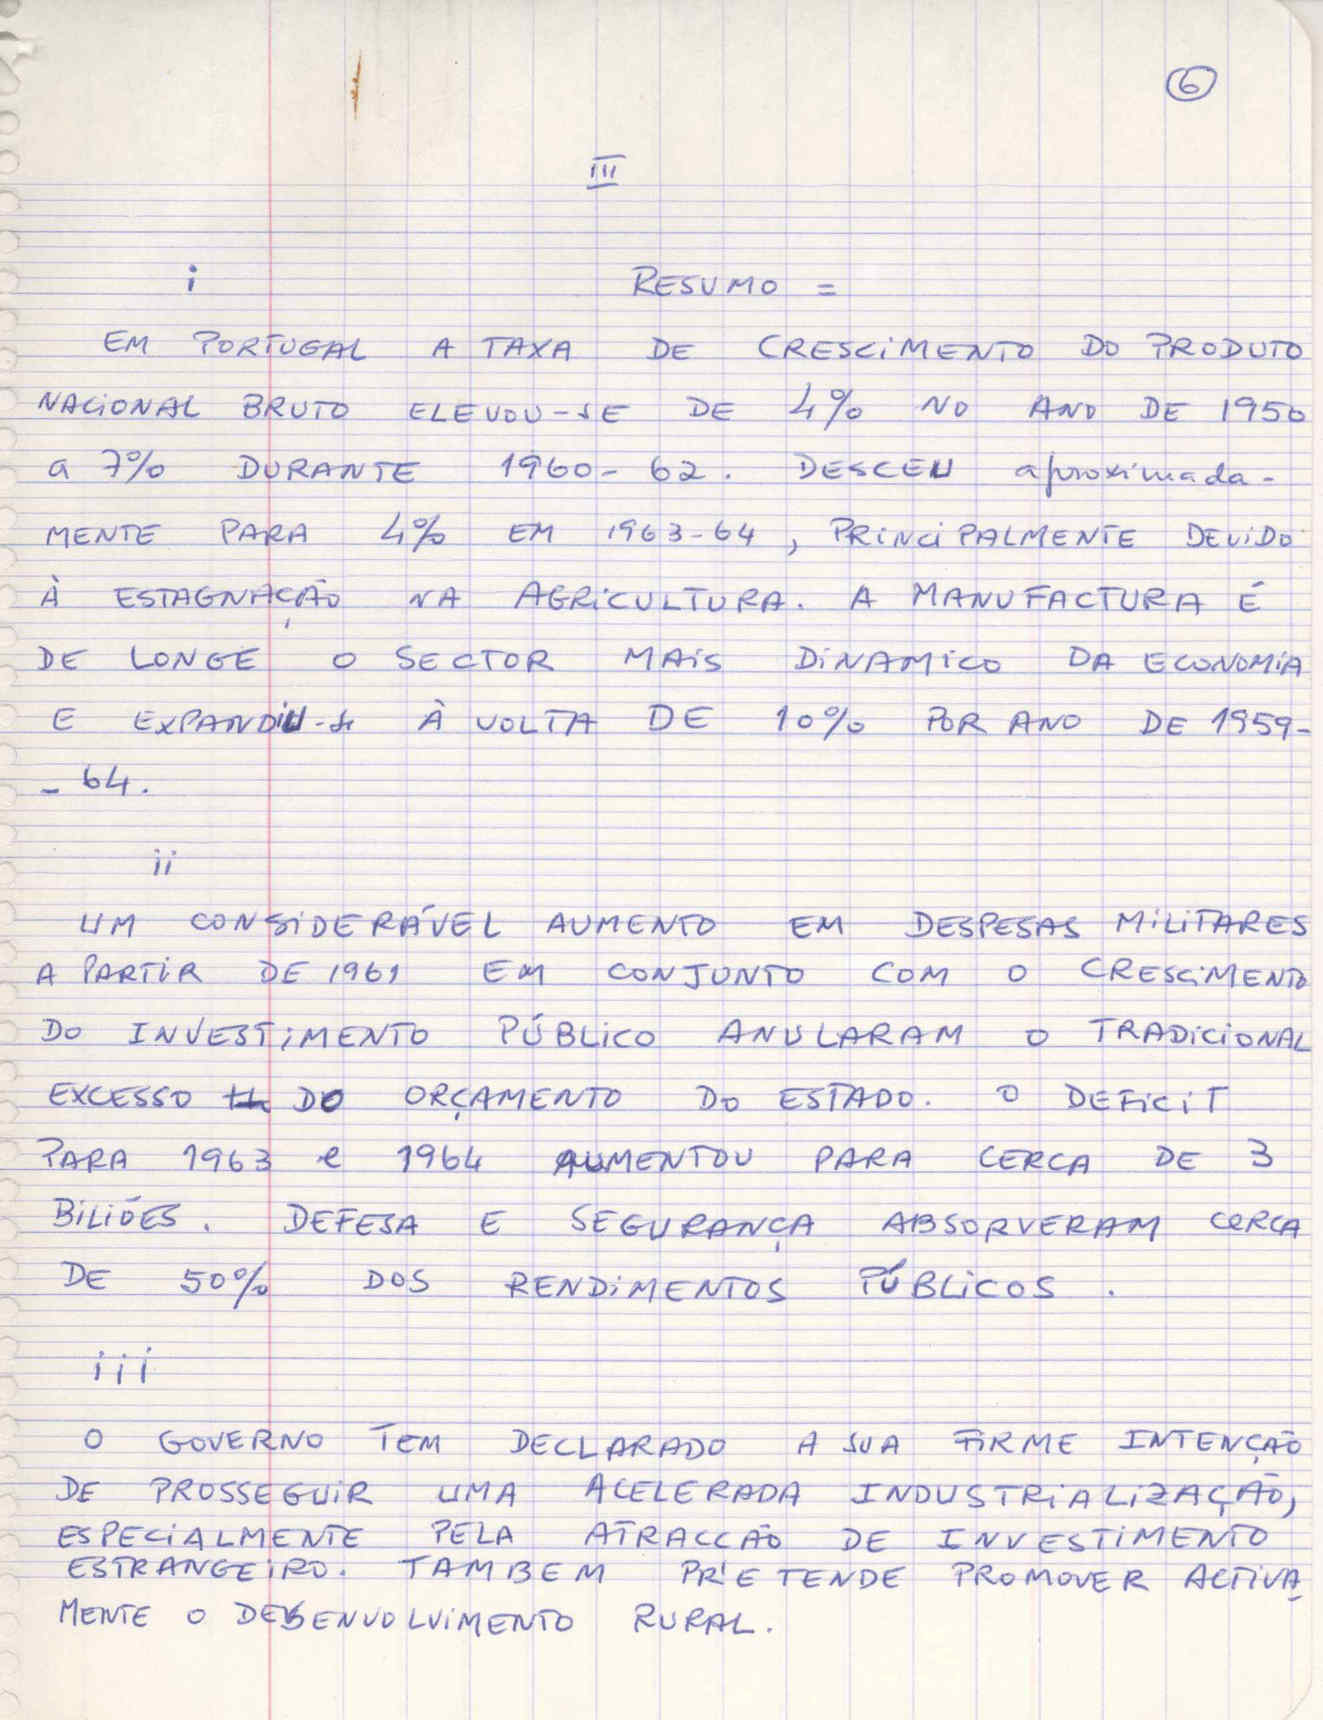 6
III
i RESUMO =
EM PORTUGAL A TAXA DE CRESCIMENTO DO PRODUTO
NACIONAL BRUTO ELEVOU-SE DE 4% NO ANO DE 1950
a 7% DURANTE 1960-62. DESCEU aproximada-
MENTE PARA 4% EM 1963-64, PRINCIPALMENTE DEVIDO
À ESTAGNAÇÃO NA AGRICULTURA. A MANUFACTURA É
DE LONGE O SECTOR MAIS DINAMICO DA ECONOMIA
E EXPANDIU-se À VOLTA DE 10% POR ANO DE 1959-
- 64.
ii
UM CONSIDERÁVEL AUMENTO EM DESPESAS MILITARES
A PARTIR DE 1961 EM CONJUNTO COM O CRESCIMENTO
DO INVESTIMENTO PÚBLICO ANULARAM O TRADICIONAL
EXCESSO DO ORÇAMENTO DO ESTADO. O DEFICIT
PARA 1963 e 1964 AUMENTOU PARA CERCA DE 3
BILIÕES. DEFESA E SEGURANÇA ABSORVERAM CERCA
DE 50% DOS RENDIMENTOS PÚBLICOS.
iii
O GOVERNO TEM DECLARADO A SUA FIRME INTENÇÃO
DE PROSSEGUIR UMA ACELERADA INDUSTRIALIZAÇÃO,
ESPECIALMENTE PELA ATRACCÃO DE INVESTIMENTO
ESTRANGEIRO. TAMBEM PRETENDE PROMOVER ACTIVA
MENTE O DESENVOLVIMENTO RURAL.